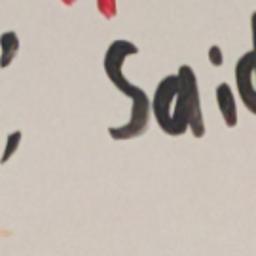 ; Said